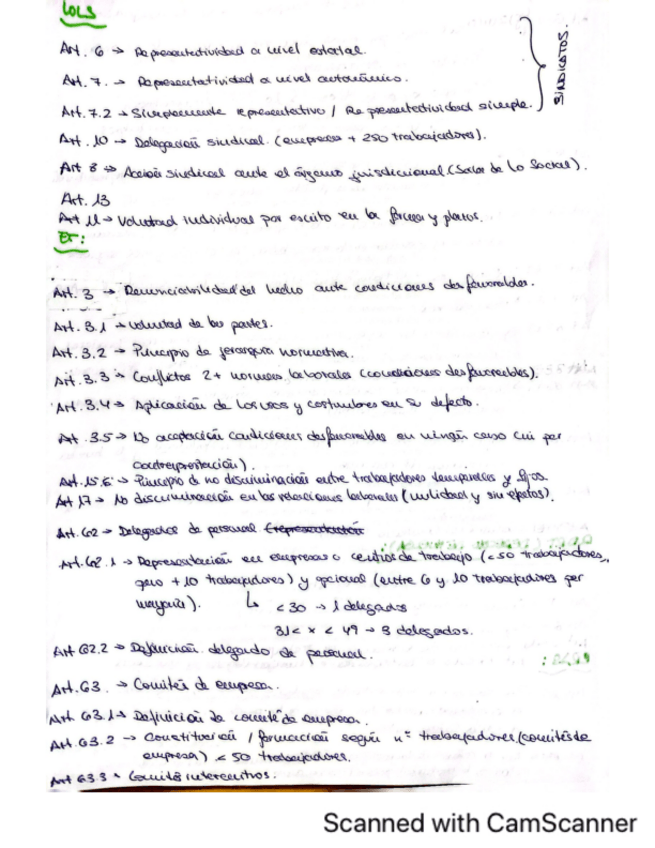 LOLS
Art. 6 → Representatividad a nivel estatal.
Art. 7. → Representatividad a nivel autonómico.
Art. 7.2 → Simplemente representativo / Representatividad simple.
SINDICATOS.
Art. 10 → Delegación sindical. (empresa + 250 trabajadores).
Art 8 → Acción sindical ante el órgano jurisdiccional (Sala de lo Social).
Art. 13
Art 11 → Voluntad individual por escrito en la forma y plazos.
ET:
Art. 3 → Renunciabilidad del hecho ante condiciones desfavorables.
Art. 3.1 → voluntad de las partes.
Art. 3.2 → Principio de jerarquía normativa.
Art. 3.3 → Conflictos 2+ normas laborales (condiciones desfavorables).
Art. 3.4 → Aplicación de los usos y costumbres en su defecto.
Art. 3.5 → No aceptación condiciones desfavorables en ningún caso (ni por
contraprestación).
Art. 15.6 → Principio de no discriminación entre trabajadores temporales y fijos.
Art 17 → No discriminación en las relaciones laborales (nulidad y sin efectos).
Art. 62 → Delegados de personal
Art. 62.1 → Representación en empresas o centros de trabajo (<50 trabajadores,
pero +10 trabajadores) y opcional (entre 6 y 10 trabajadores por
mayoría).
↳ <30 → 1 delegados
31< x < 49 → 3 delegados.
Art 62.2 → Definición delegado de personal.
Art. 63. → Comités de empresa.
Art 63.1 → Definición de comité de empresa.
Art. 63.2 → Constitución / formación según nº trabajadores (comités de
empresa) < 50 trabajadores.
Art 63.3 → Comités intercentros.
Scanned with CamScanner